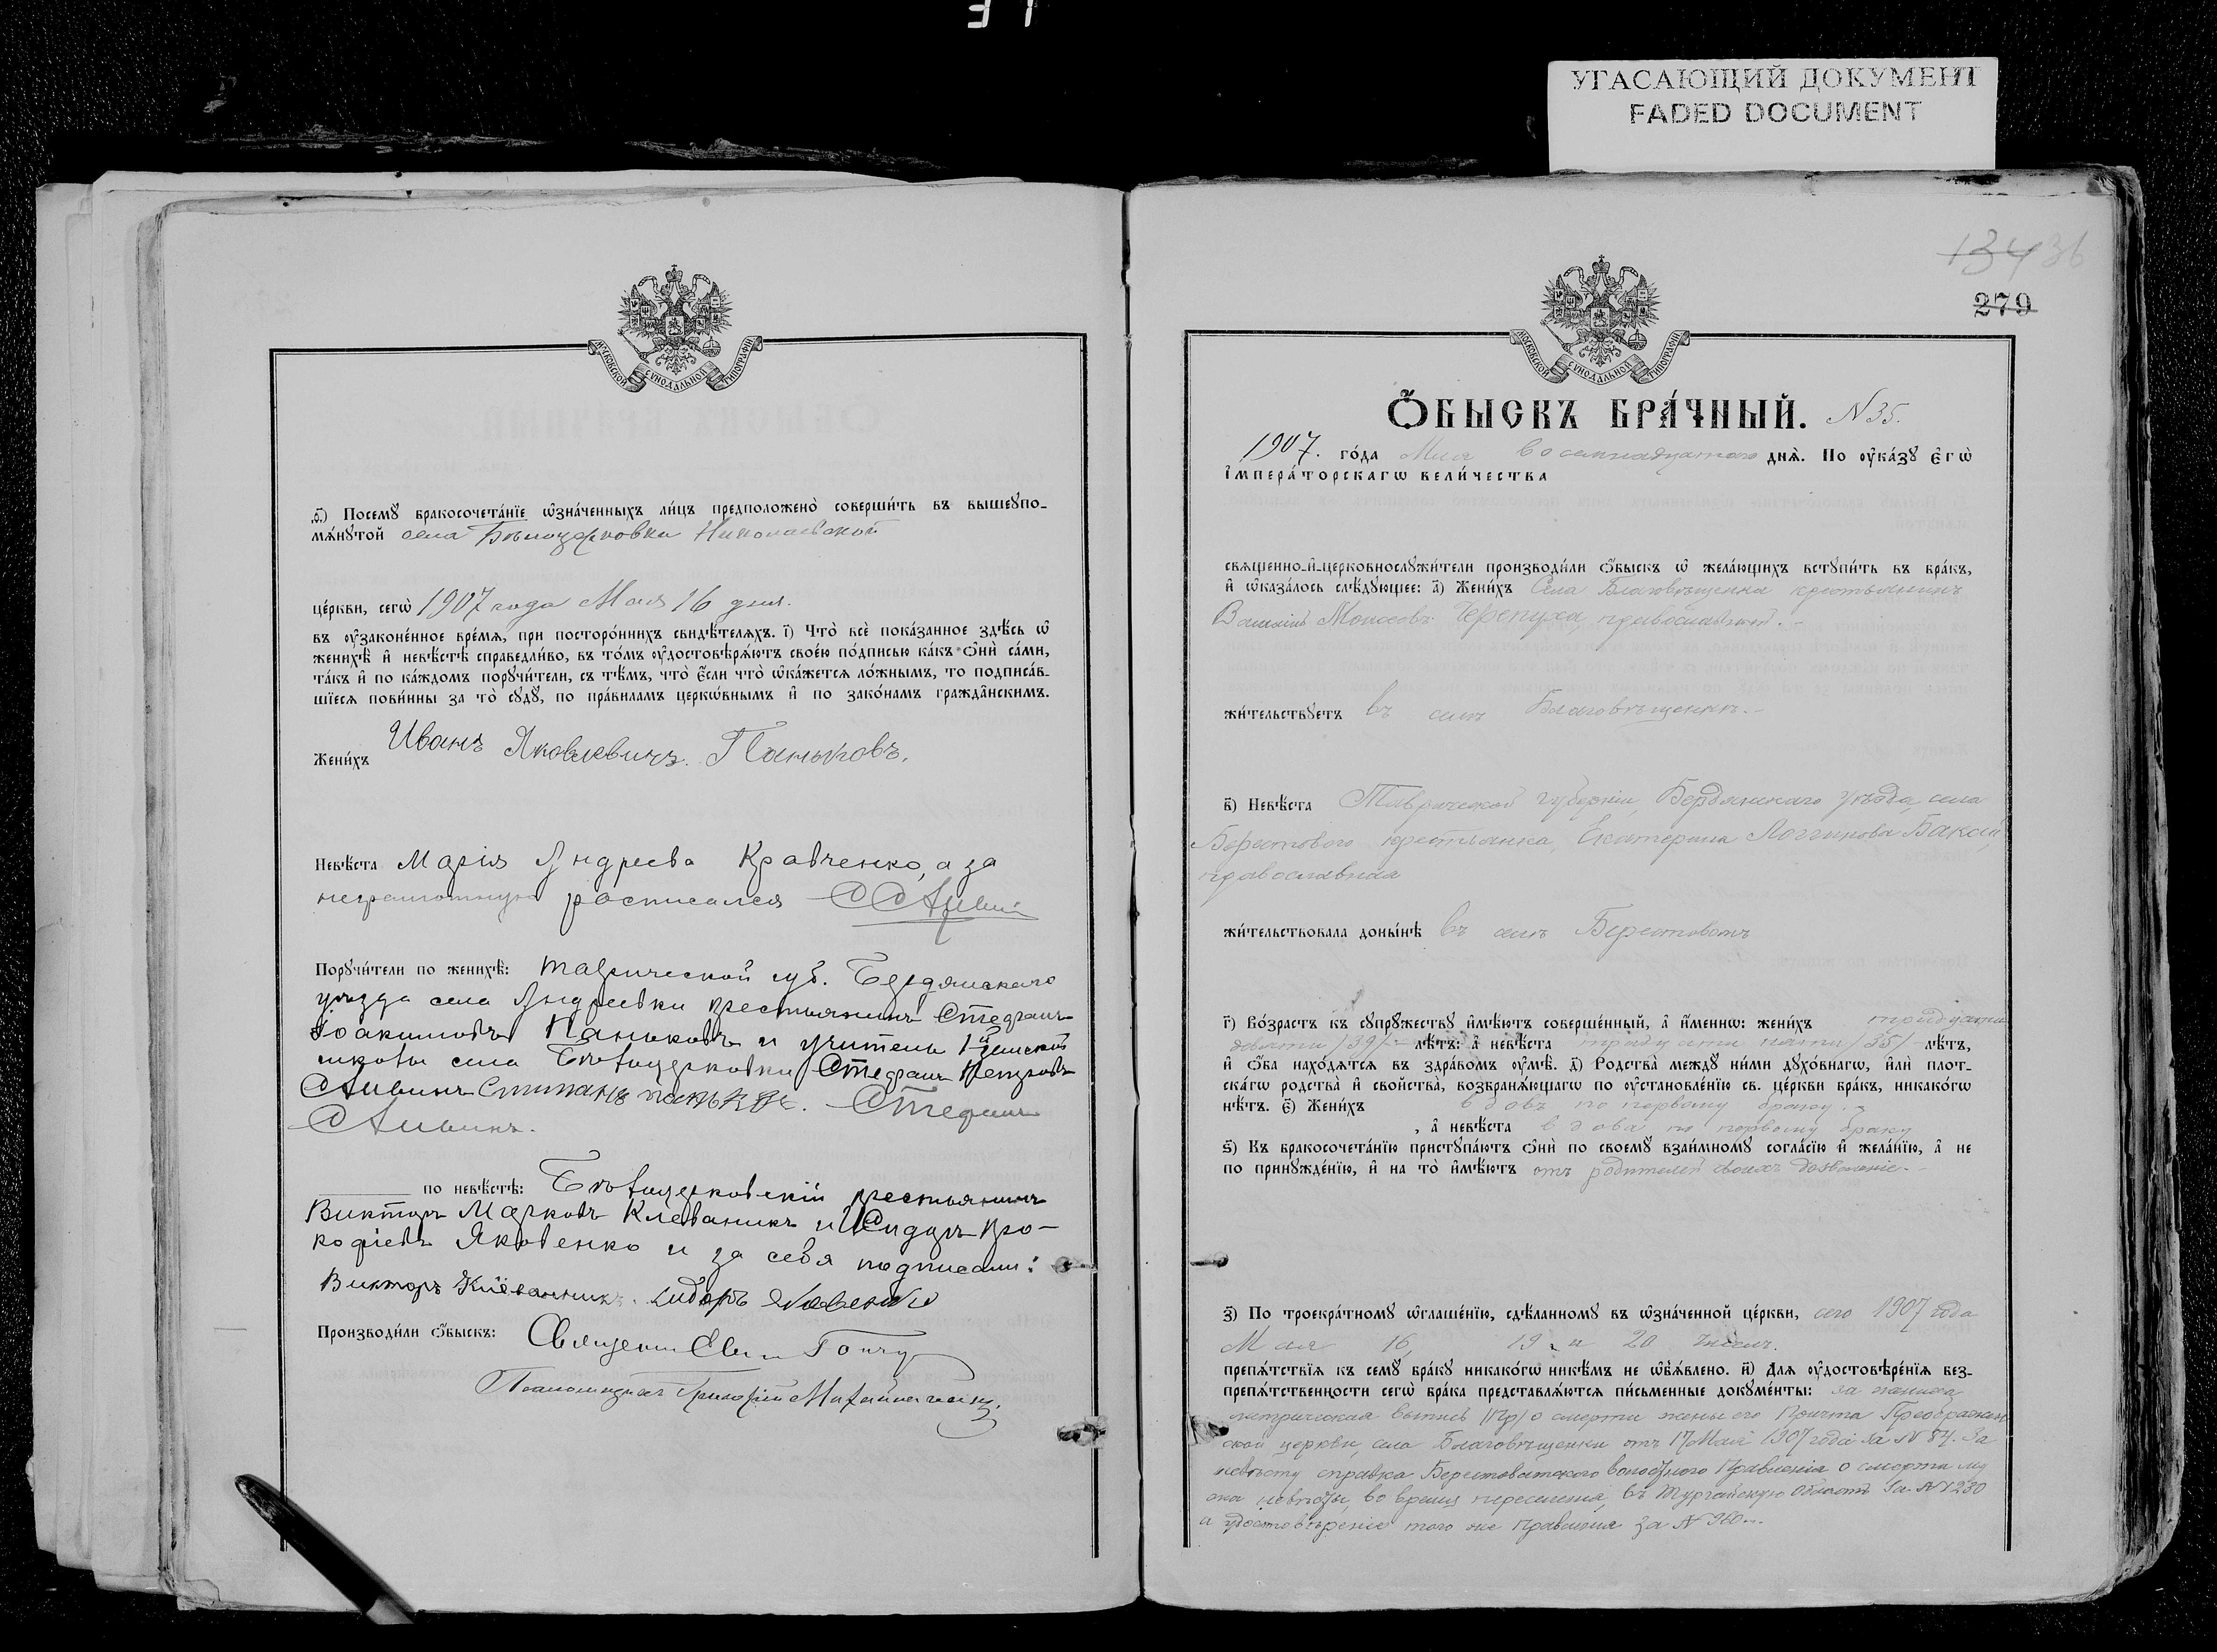 31
УГАСАЮЩИЙ ДОКУМЕНТ
FADED DOCUMENT
МОСКОВСКОЙ СѴНОДАЛЬНОЙ ТИПОГРАФІИ
ѳ҃) Посемꙋ̀ бракосочета́нїе ѡ҆зна́ченныхъ ли́цъ предположено̀ соверши́ть въ вышеꙋпо-
мѧ́нꙋтой села Бѣлоцерковки Николаевской
це́ркви, сегѡ̀ 1907 года Мая 16 дня.
въ ᲂу҆зако́ненное вре́мѧ, при посторо́ннихъ свидѣ́телѧхъ. і҃) Что̀ всѐ пока́занное здѣ́сь ѡ҆
женихѣ̀ и҆ невѣ́стѣ справедли́во, въ то́мъ ᲂу҆достовѣрѧ́ютъ свое́ю по́дписью ка́къ ѻ҆нѝ са́ми,
та́къ и҆ по ка́ждомъ порꙋчи́тели, съ тѣ́мъ, что̀ є҆́сли что̀ ѡ҆ка́жетсѧ ло́жнымъ, то подписа́в-
шїесѧ пови́нны за то̀ сꙋдꙋ̀, по пра́виламъ церко́внымъ и҆ по зако́намъ гражда́нскимъ.
Жени́хъ Иванъ Яковлевичъ Паньковъ.
Невѣ́ста Марія Андреева Кравченко, а за
неграмотную росписался С Аливин
Порꙋчи́тели по женихѣ̀: Таврической губ. Бердянскаго
уѣзда села Андреевки крестьянинъ Стефанъ
Іоакимовъ Паньковъ и учитель 1й земской
школы села Бѣлоцерковки Стефанъ Петровъ
Стефанъ
по невѣ́стѣ: Бѣлоцерковскіи крестьянинъ
Викторъ Марковъ Клеванникъ и Сидоръ Про-
кофіевъ Яковенко и за себя подписали:
Викторъ Клеванникъ. Сидоръ Яковенко
Производи́ли ѻ҆́быскъ: Священн
Псаломщикъ Григорій
134 36
279
МОСКОВСКОЙ СѴНОДАЛЬНОЙ ТИПОГРАФІИ
Ѻ҆́БЫСКЪ БРА́ЧНЫЙ. N 35.
1907. го́да Мая восемнадцатого днѧ̀. По ᲂу҆ка́зꙋ є҆гѡ̀
і҆мпера́торскагѡ вели́чества
свѧщенно-и҆-церковнослꙋжи́тели производи́ли ѻ҆́быскъ ѡ҆ жела́ющихъ встꙋпи́ть въ бра́къ,
и҆ ѡ҆каза́лось слѣ́дꙋющее: а҃) Жени́хъ Села Благовѣщенки крестьянинъ
Моисеевъ Черепуха, православный.
жи́тельствꙋетъ въ селѣ Благовѣщенкѣ.
в҃) Невѣ́ста Таврической губерніи, Бердянскаго уѣзда, села
Берестового крестьянка, Екатерина Логгинова Бакай,
православная
жи́тельствовала доны́нѣ въ селѣ Берестовомъ
г҃) Во́зрастъ къ сꙋпрꙋ́жествꙋ и҆мѣ́ютъ соверше́нный, а҆ и҆́менно: жени́хъ тридцати
девяти /39/ лѣ́тъ: а҆ невѣ́ста тридцати пяти /35/ лѣ́тъ,
и҆ ѻ҆́ба нахо́дѧтсѧ въ здра́вомъ ᲂу҆мѣ̀. д҃) Родства̀ междꙋ ни́ми дꙋхо́внагѡ, и҆лѝ плот-
ска́гѡ родства̀ и҆ свойства̀, возбранѧ́ющагѡ по ᲂу҆становле́нїю св. це́ркви бра́къ, никако́гѡ
нѣ́тъ. є҃) Жени́хъ вдовъ по первому браку.
, а҆ невѣ́ста вдова по первому браку
ѕ҃) Къ бракосочета́нїю пристꙋпа́ютъ ѻ҆нѝ по своемꙋ̀ взаи́мномꙋ согла́сїю и҆ жела́нїю, а҆ не
по принꙋжде́нїю, и҆ на то̀ и҆мѣ́ютъ отъ родителей своихъ дозволеніе.
з҃) По троекра́тномꙋ ѡ҆глаше́нїю, сдѣ́ланномꙋ въ ѡ҆зна́ченной це́ркви, сего 1907 года
Мая 16, 19 и 20 чиселъ
препѧ́тствїѧ къ семꙋ̀ бра́кꙋ никако́гѡ никѣ́мъ не ѡ҆б̾ѧ́влено. и҃) Длѧ ᲂу҆достовѣре́нїѧ без-
препѧ́тственности сегѡ̀ бра́ка представлѧ́ютсѧ пи́сьменные докꙋме́нты: за жениха
метрическая выпись о смерти жены его Причта Преображен
ской церкви, села Благовѣщенки отъ 17 Мая 1907 года за N 84. За
невѣсту справка Берестоватского волостного Правленія о смерти му
жа невѣсты, во время переселенія, въ Тургайскую Область за N 1230
и удостовѣреніе того же Правленія за N 960